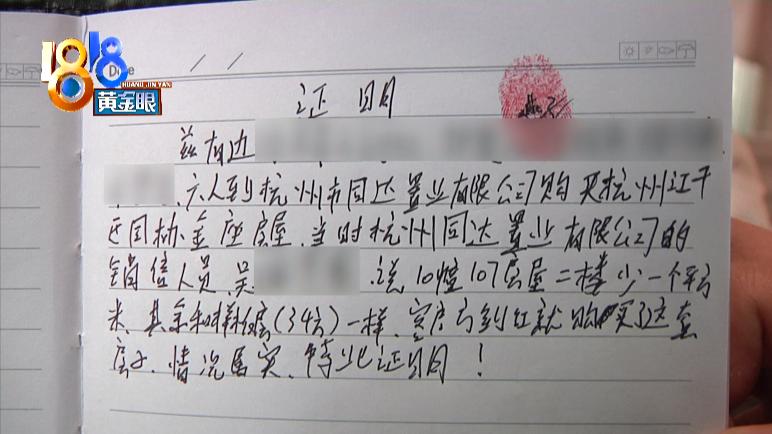 1818
HUANG JIN YAN
黄金眼
Date / /
证明
兹有边
六人到杭州市同达置业有限公司购买杭州江干
区同协金座房屋、当时杭州同达置业有限公司的
销售人员、吴 说10幢107房屋二楼少一个平方
米、其余和 (34方)一样、 就购买了这套
房子、情况属实、特此证明!